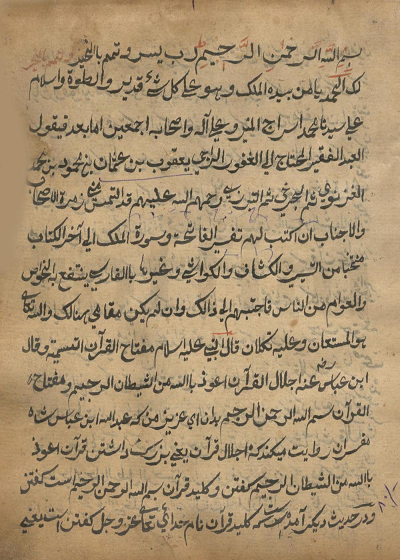 بسم الله الرحمن الرحیم رب یسر وتمم بالخیر
لک الحمد یامن بیده الملک وهو علی کل شئ قدیر والصلوة والسلام
علی سیدنا محمد السراج المنیر وعلی آله واصحابه اجمعین اما بعد فیقول
العبد الفقیر المحتاج الی الغفور الرحیم یعقوب بن عثمان بن محمود بن محمد
الغزنوی ثم الجرخی ثم رحمهم الله علیهم قد التمس منی زمرة الاصحاب
والاحباب ان اکتب لهم تفسیر الفاتحة وسورة الملک الی آخر الکتاب
منتخبا من التیسیر والکشاف والکواشی وغیرها بالفارسی ینتفع به الخواص
والعوام من الناس فاجبتهم الی ذالک وان لم یکن مقامی هنالک والله تعالی
هو المستعان وعلیه تکلان قال النبی علیه السلام مفتاح القرآن التسمیة وقال
ابن عباس رضی عنه اجلال القرآن اعوذ بالله من الشیطان الرجیم ومفتاح
القرآن بسم الله الرحمن الرحیم بدان ای عزیز من که عبدالله ابن عباس شاه
مفسران روایت میکند که اجلال قرآن یعنی بزرک داشتن قرآن اعوذ
بالله من الشیطان الرجیم کفتن و کلید قرآن بسم الله الرحمن الرحیم است کفتن
ودر حدیث دیکر آمده است که کلید قرآن نام خدای تعالی عز وجل کفتن است یعنی